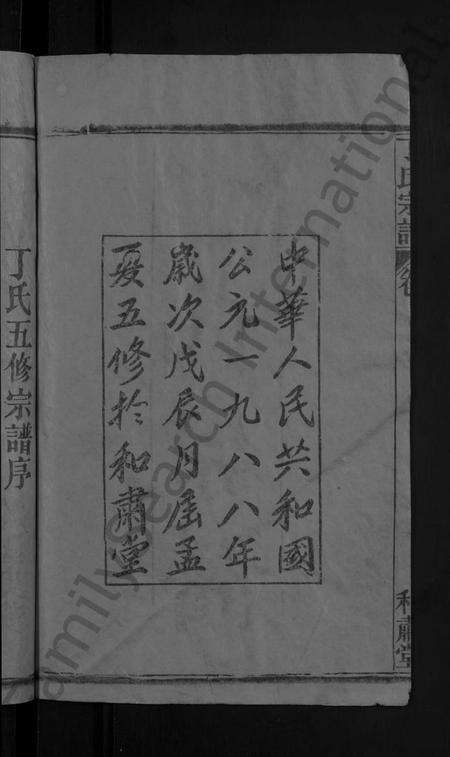 丁氏宗譜
和肅堂
中華人民共和國
公元一九八八年
歲次戊辰月屆孟
夏五修於和肅堂
丁氏五修宗譜序
FamilySearch International